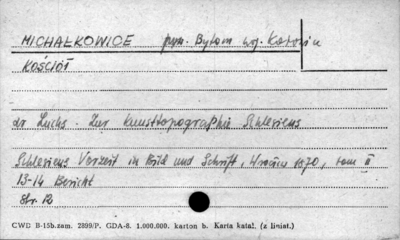 MICHAŁKOWICE pow. Bytom woj. Katowice
KOŚCIÓŁ
dr Luchs - Zur Kunsttopographie Schlesiens
Schlesiens Vorzeit in Bild und Schrift, Wrocław 1870, tom II
13-14 Bericht
Str. 12
CWD B-15b.zam. 2899/P. GDA-8. 1.000.000. karton b. Karta katal. (z liniat.)